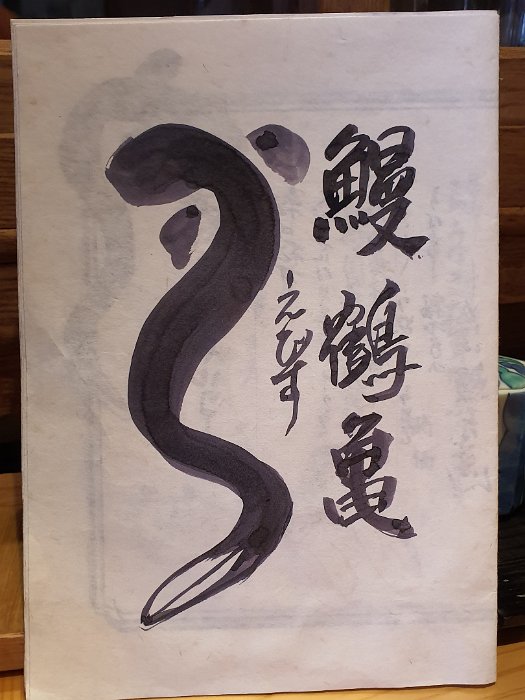 鰻鶴亀
えびす